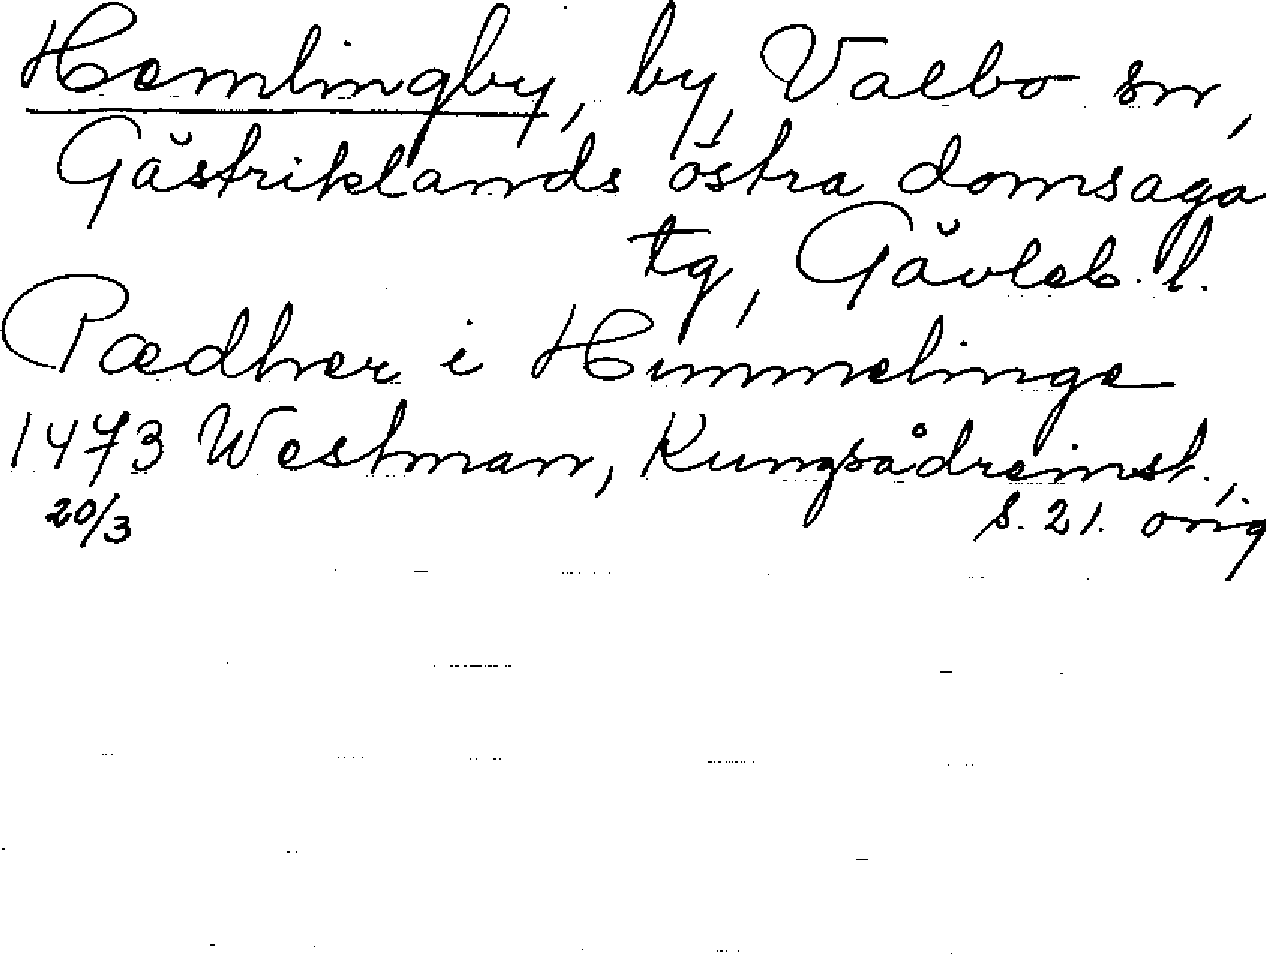 Hemlingby, by, Valbo sn,
Gästriklands östra domsaga
tg, Gävleb. l.
Pædher i Himmelinge
1473 Westman, Kungsådreinst.,
20/3 s. 21. orig